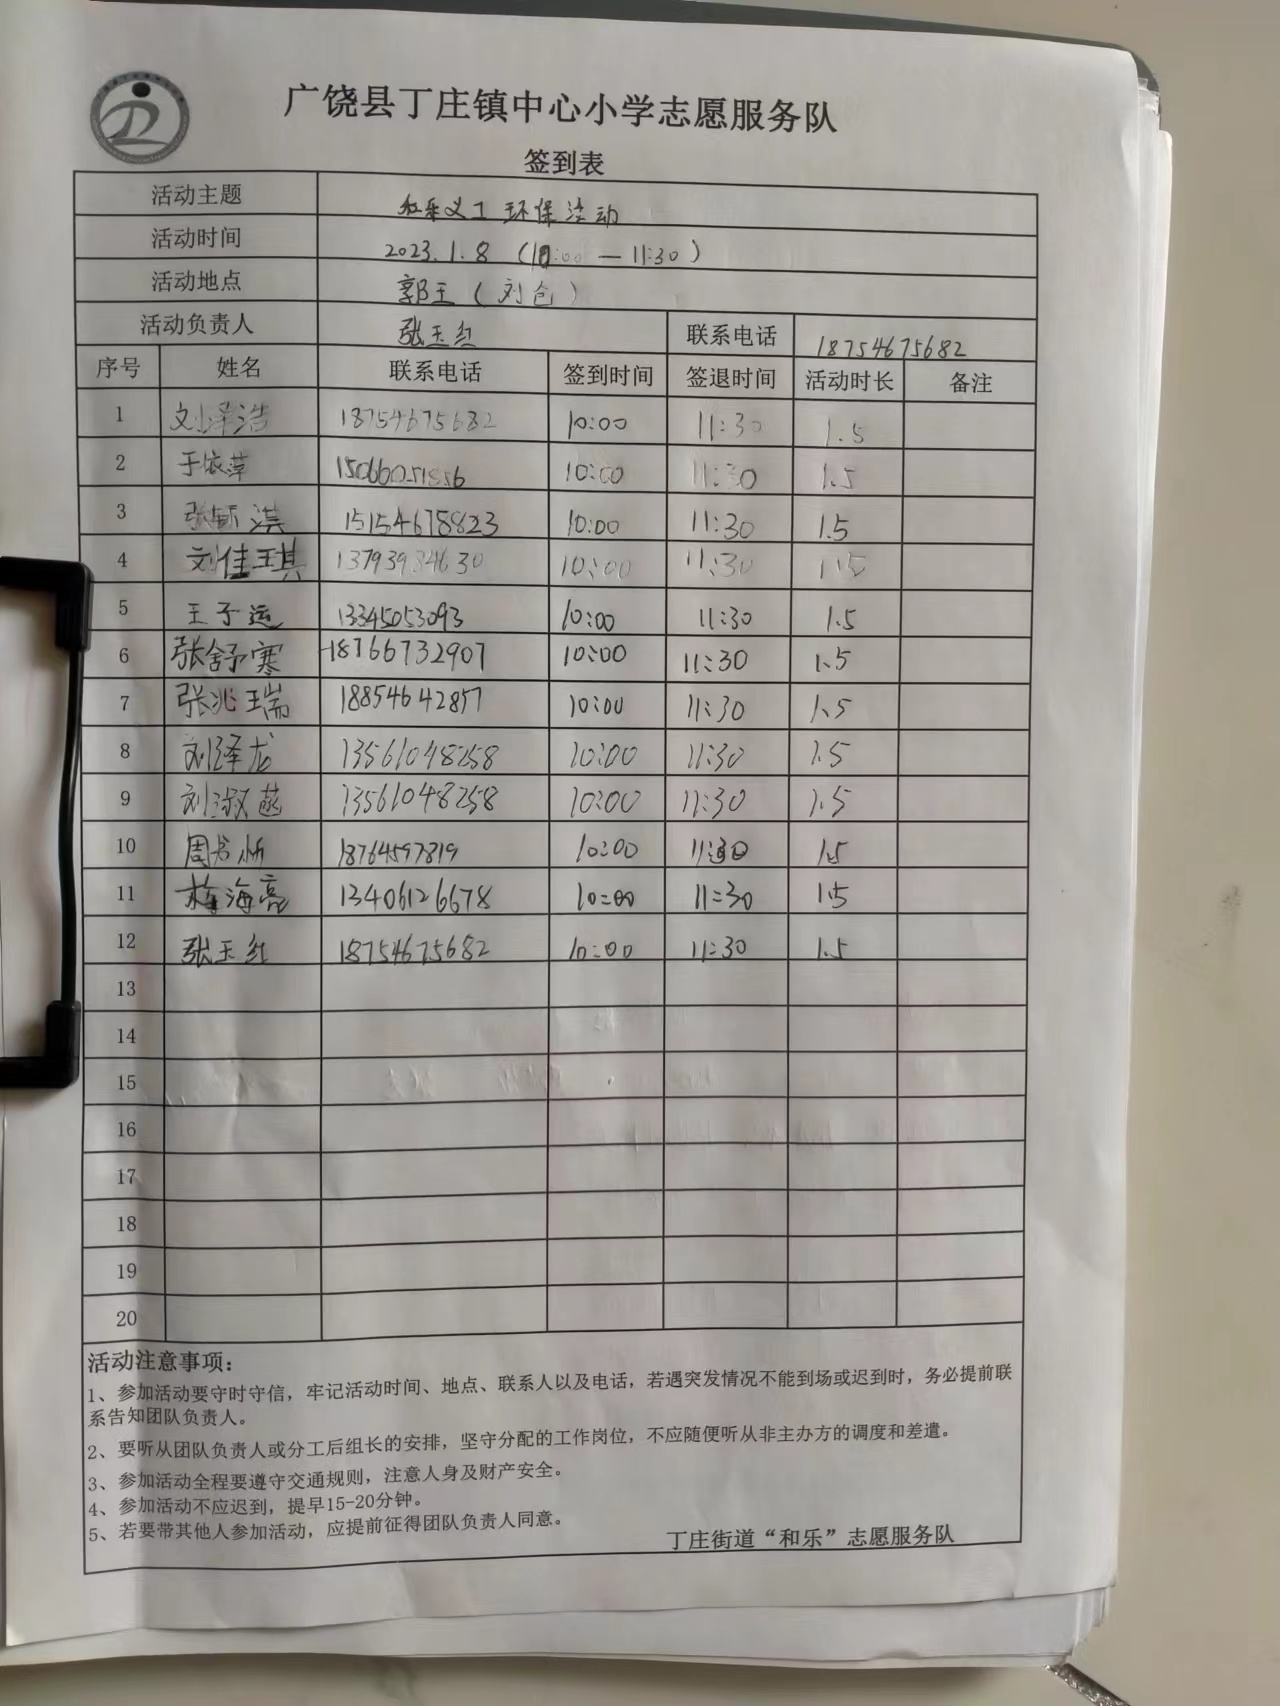 广饶县丁庄镇中心小学志愿服务队
签到表
活动主题 和乐义工环保活动
活动时间 2023.1.8 (10:00 — 11:30)
活动地点 郭王(刘仓)
活动负责人 张玉红 联系电话 18754675682
序号 姓名 联系电话 签到时间 签退时间 活动时长 备注
1 刘泽浩 18754675682 10:00 11:30 1.5
2 于依萍 15066051856 10:00 11:30 1.5
3 张 淇 15154678823 10:00 11:30 1.5
4 刘佳琪 13793934630 10:00 11:30 1.5
5 王子运 13345053093 10:00 11:30 1.5
6 张舒寒 18766732907 10:00 11:30 1.5
7 张兆瑞 18854642857 10:00 11:30 1.5
8 刘泽龙 13561048258 10:00 11:30 1.5
9 刘淑菡 13561048258 10:00 11:30 1.5
10 周 18764597819 10:00 1.5
11 海亮 13406126678 10:00 11:30 1.5
12 张玉红 18754675682 10:00 11:30 1.5
13
14
15
16
17
18
19
20
活动注意事项：
1、参加活动要守时守信，牢记活动时间、地点、联系人以及电话，若遇突发情况不能到场或迟到时，务必提前联
系告知团队负责人。
2、要听从团队负责人或分工后组长的安排，坚守分配的工作岗位，不应随便听从非主办方的调度和差遣。
3、参加活动全程要遵守交通规则，注意人身及财产安全。
4、参加活动不应迟到，提早15-20分钟。
5、若要带其他人参加活动，应提前征得团队负责人同意。
丁庄街道“和乐”志愿服务队